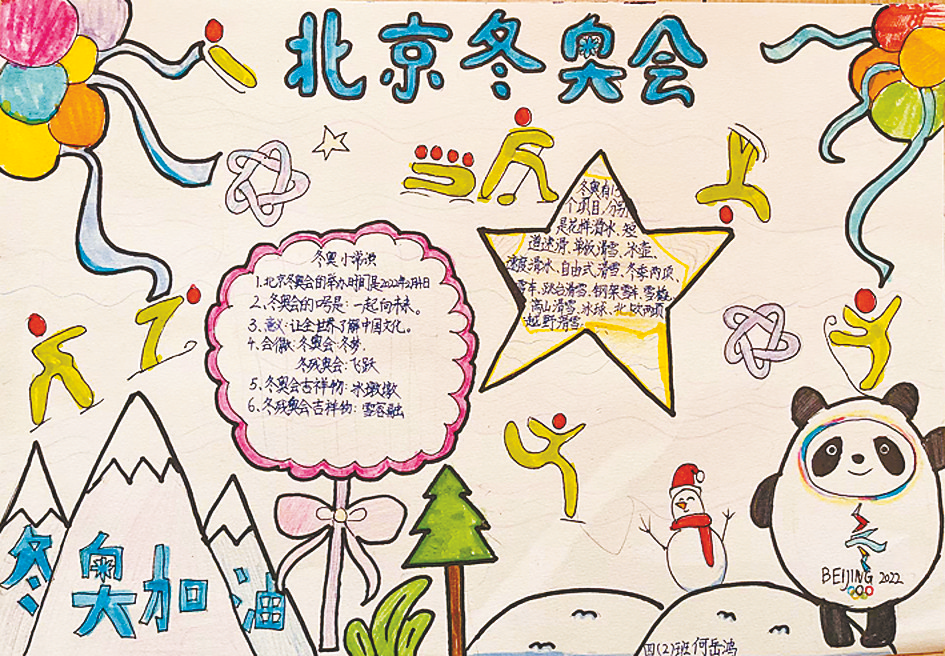 北京冬奥会
冬奥小常识
1.北京冬奥会的举办时间是2022年2月4日
2、冬奥会的口号是:一起向未来。
3、意义:让全世界了解中国文化。
4、会徽:冬奥会:冬梦,
冬残奥会:飞跃
5、冬奥会吉祥物:冰墩墩
6、冬残奥会吉祥物:雪容融
冬奥有15
个项目,分别
是花样滑冰、短
道速滑、单板滑雪、冰壶、
速度滑冰、自由式滑雪、冬季两项
雪车、跳台滑雪、钢架雪车、雪橇、
高山滑雪、冰球、北欧两项
越野滑雪.
冬奥加油
BEIJING 2022
四(2)班 何岳鸿